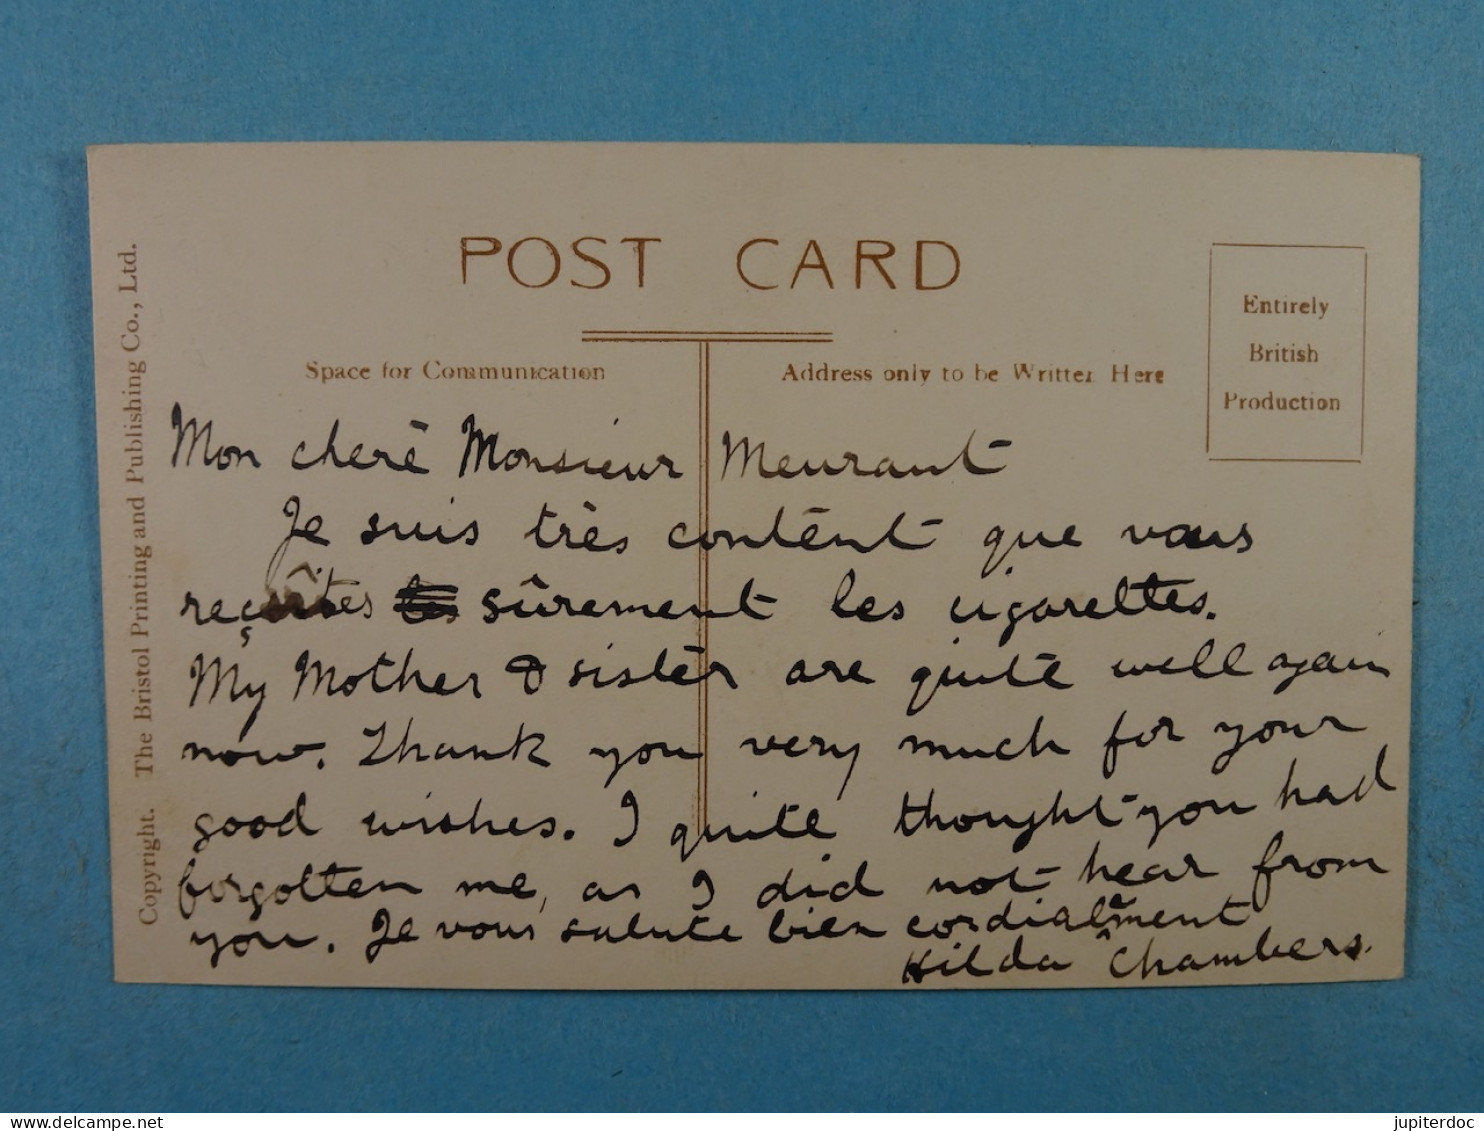 POST CARD
Space for Communication
Address only to be Written Here
Entirely
British
Production
Copyright. The Bristol Printing and Publishing Co., Ltd.
Mon cherè Monsieur Meurant
Je suis très contènt que vous
reçûtes sûrement les cigarettes.
My Mother & sister are quite well again
now. Thank you very much for your
good wishes. I quite thought you had
forgotten me, as I did not hear from
you. Je vous salute bien cordialement
Hilda Chambers.
delcampe.net
jupiterdoc